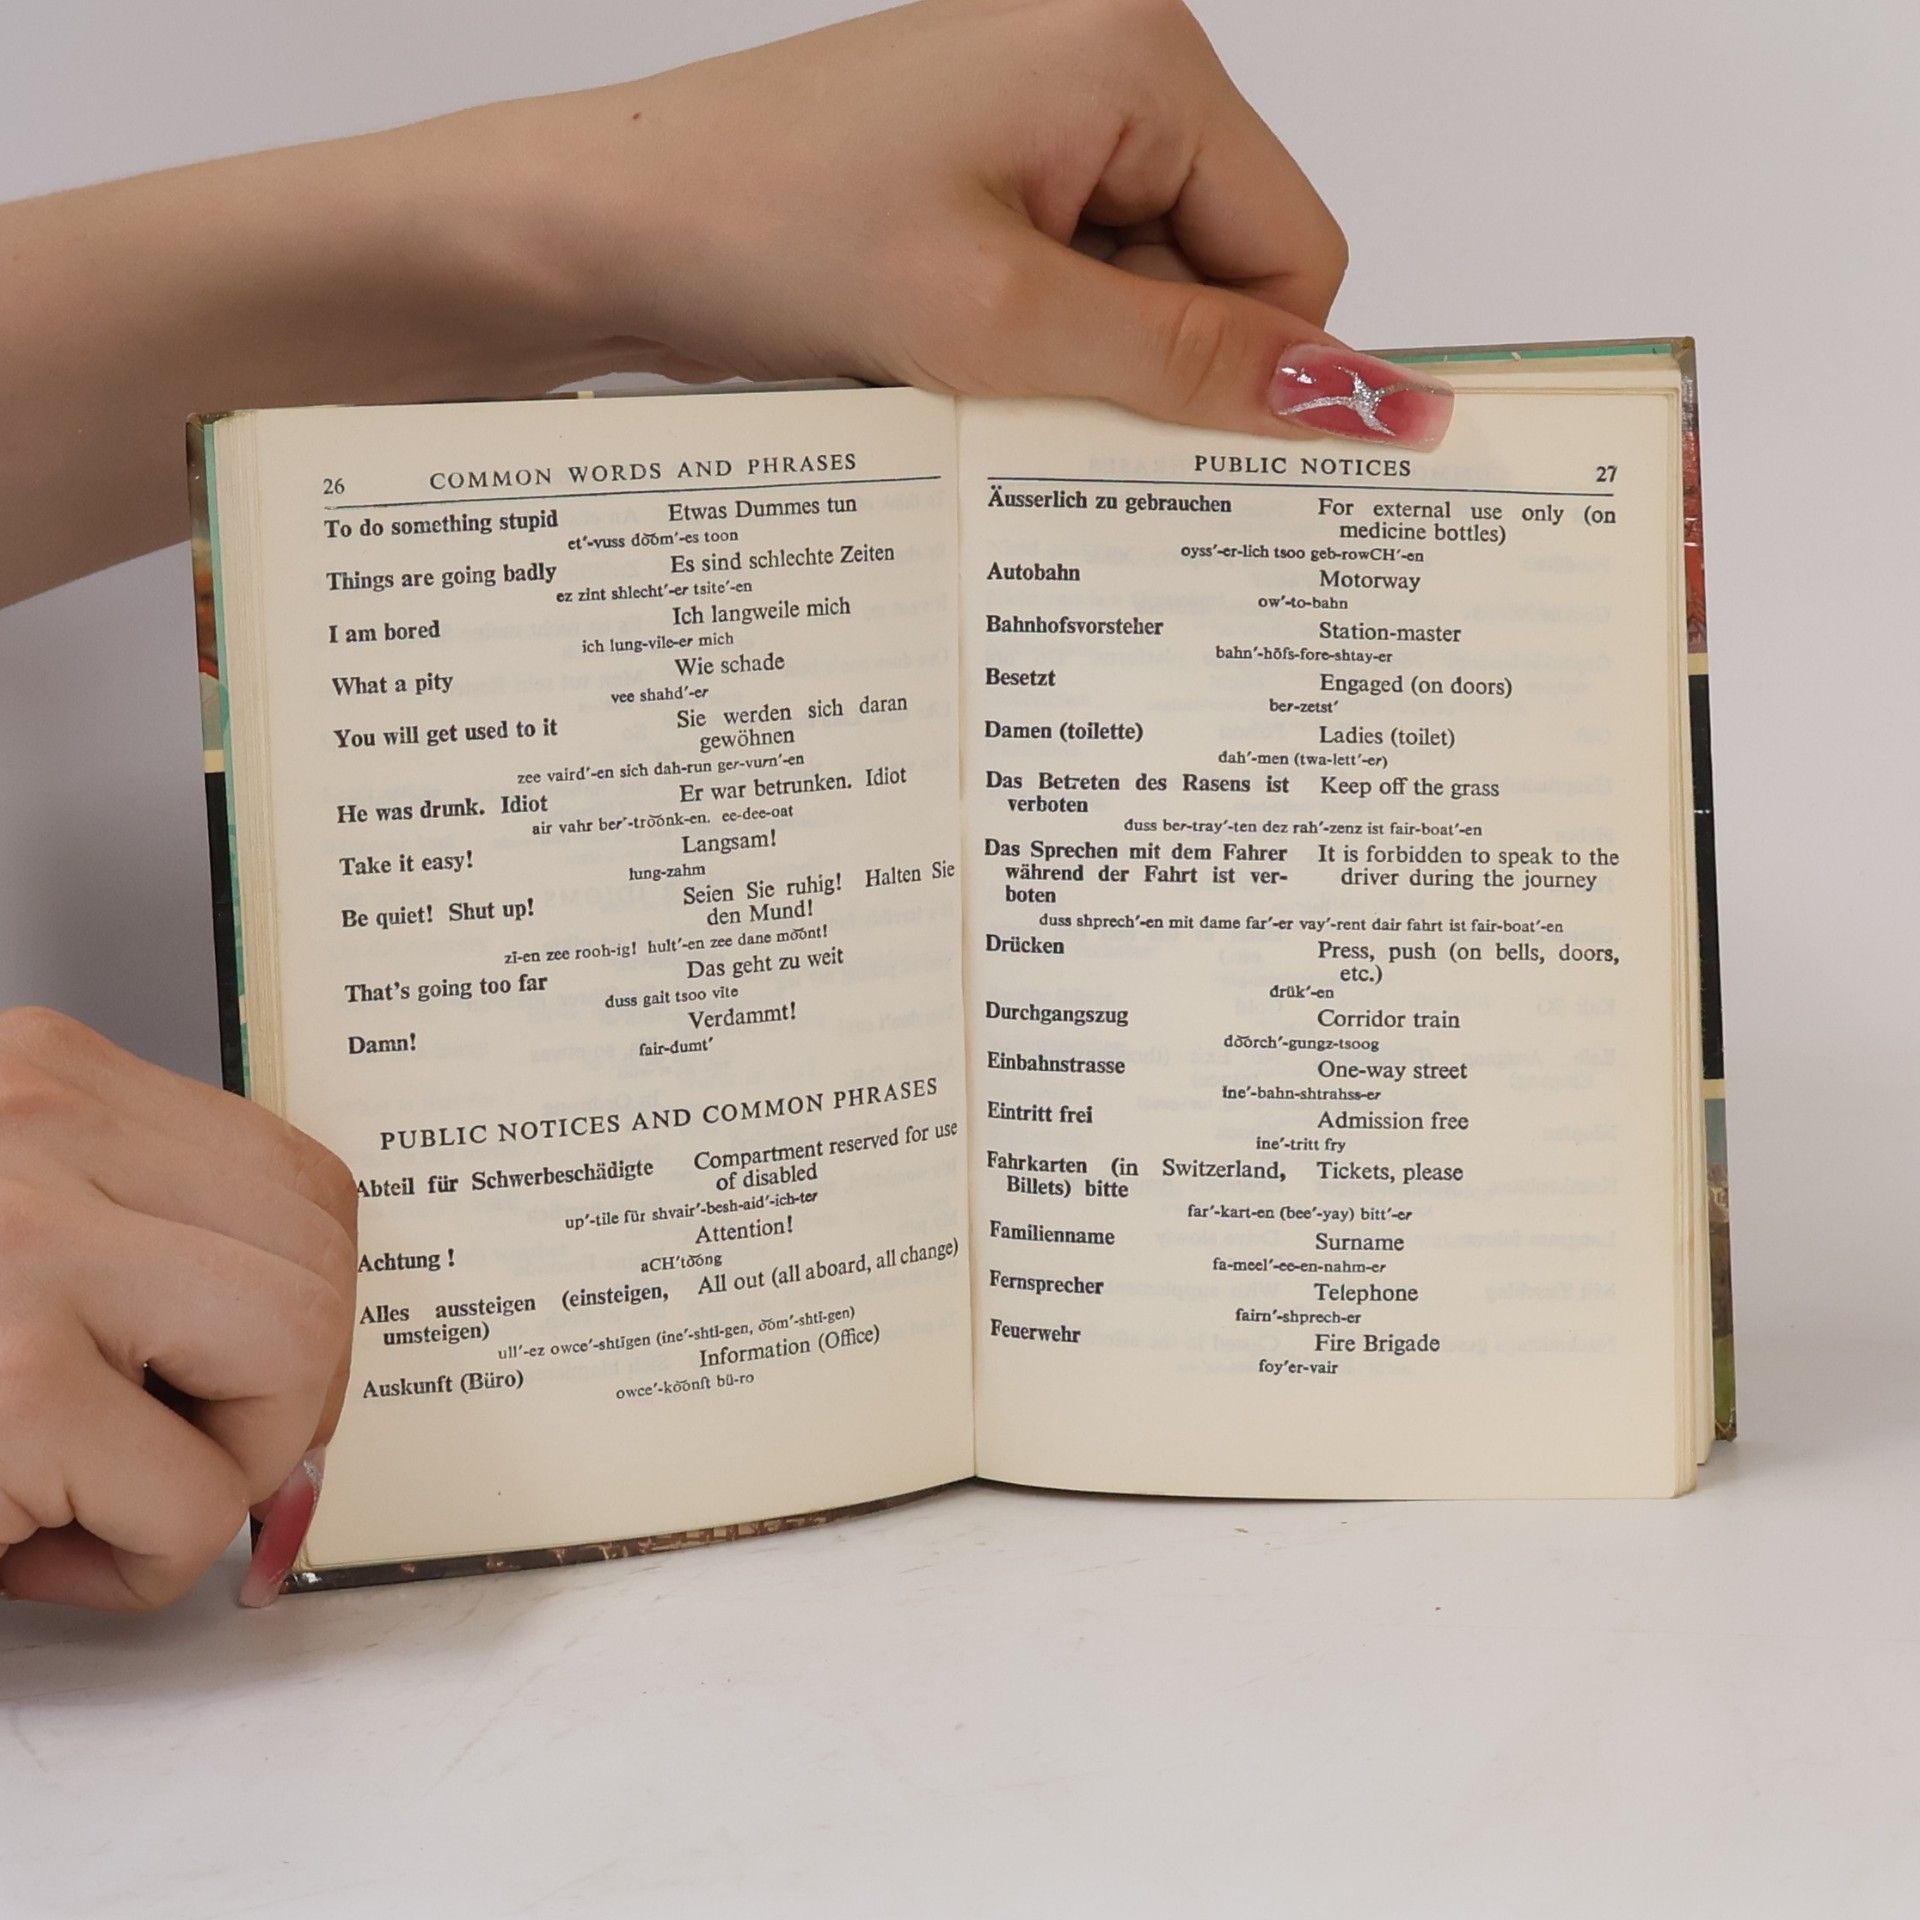 26 COMMON WORDS AND PHRASES
To do something stupid Etwas Dummes tun
et′-vuss dŏŏm′-es toon
Things are going badly Es sind schlechte Zeiten
ez zint shlecht′-er tsite′-en
I am bored Ich langweile mich
ich lung-vile-er mich
What a pity Wie schade
vee shahd′-er
You will get used to it Sie werden sich daran
gewöhnen
zee vaird′-en sich dah-run ger-vurn′-en
He was drunk. Idiot Er war betrunken. Idiot
air vahr ber′-trŏŏnk-en. ee-dee-oat
Take it easy! Langsam!
lung-zahm
Be quiet! Shut up! Seien Sie ruhig! Halten Sie
den Mund!
zī-en zee rooh-ig! hult′-en zee dane mŏŏnt!
That's going too far Das geht zu weit
duss gait tsoo vite
Damn! Verdammt!
fair-dumt′
PUBLIC NOTICES AND COMMON PHRASES
Abteil für Schwerbeschädigte Compartment reserved for use
of disabled
up′-tile für shvair′-besh-aid′-ich-ter
Achtung ! Attention!
aCH′tŏŏng
Alles aussteigen (einsteigen, All out (all aboard, all change)
umsteigen)
ull′-ez owce′-shtīgen (ine′-shtī-gen, ŏŏm′-shtī-gen)
Auskunft (Büro) Information (Office)
owce′-kŏŏnft bü-ro
PUBLIC NOTICES 27
Äusserlich zu gebrauchen For external use only (on
medicine bottles)
oyss′-er-lich tsoo geb-rowCH′-en
Autobahn Motorway
ow′-to-bahn
Bahnhofsvorsteher Station-master
bahn′-hōfs-fore-shtay-er
Besetzt Engaged (on doors)
ber-zetst′
Damen (toilette) Ladies (toilet)
dah′-men (twa-lett′-er)
Das Betreten des Rasens ist Keep off the grass
verboten
duss ber-tray′-ten dez rah′-zenz ist fair-boat′-en
Das Sprechen mit dem Fahrer It is forbidden to speak to the
während der Fahrt ist ver- driver during the journey
boten
duss shprech′-en mit dame far′-er vay′-rent dair fahrt ist fair-boat′-en
Drücken Press, push (on bells, doors,
etc.)
drük′-en
Durchgangszug Corridor train
dŏŏrch′-gungz-tsoog
Einbahnstrasse One-way street
ine′-bahn-shtrahss-er
Eintritt frei Admission free
ine′-tritt fry
Fahrkarten (in Switzerland, Tickets, please
Billets) bitte
far′-kart-en (bee′-yay) bitt′-er
Familienname Surname
fa-meel′-ee-en-nahm-er
Fernsprecher Telephone
fairn′-shprech-er
Feuerwehr Fire Brigade
foy′er-vair